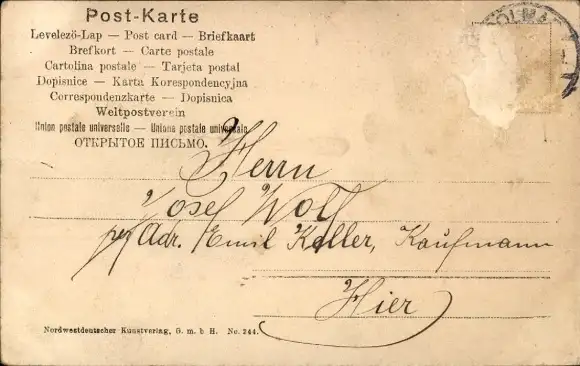 Post-Karte
Levelező-Lap — Post card — Briefkaart
Brefkort — Carte postale
Cartolina postale — Tarjeta postal
Dopisnice — Karta Korespondencyjna
Correspondenzkarte — Dopisnica
Weltpostverein
Union postale universelle — Unione postale universale
ОТКРЫТОЕ ПИСЬМО.
COLMAR
Herrn
Josef Wolf
Adr. Emil Keller, Kaufmann
Hier
Nordwestdeutscher Kunstverlag, G. m. b H. No. 244.